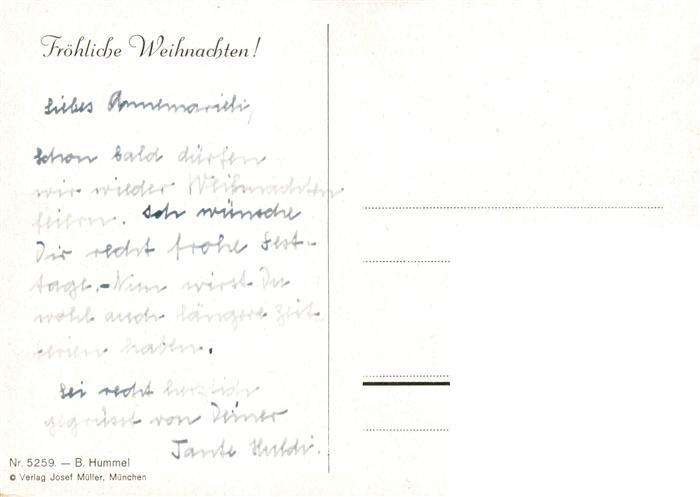 Fröhliche Weihnachten!
Liebes Annemarieli,
Schon bald dürfen
wir wieder Weihnachten
feiern. Ich wünsche
Dir recht frohe Fest-
tage. - Nun wirst Du
wohl auch längere Zeit
Ferien haben.
Sei recht herzlich
gegrüsst von Deiner
Tante Huldi.
Nr. 5259. — B. Hummel
© Verlag Josef Müller, München